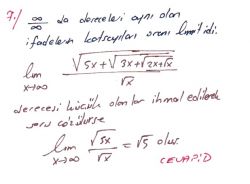 7-) ∞/∞ da dereceleri aynı olan
ifadelerin katsayıları oranı limitidir.
lim x→∞ √(5x+√(3x+√(2x+√x))) / √x
derecesi küçük olanlar ihmal edilerek
soru çözülürse
lim x→∞ √5x / √x = √5 olur.
CEVAP: D